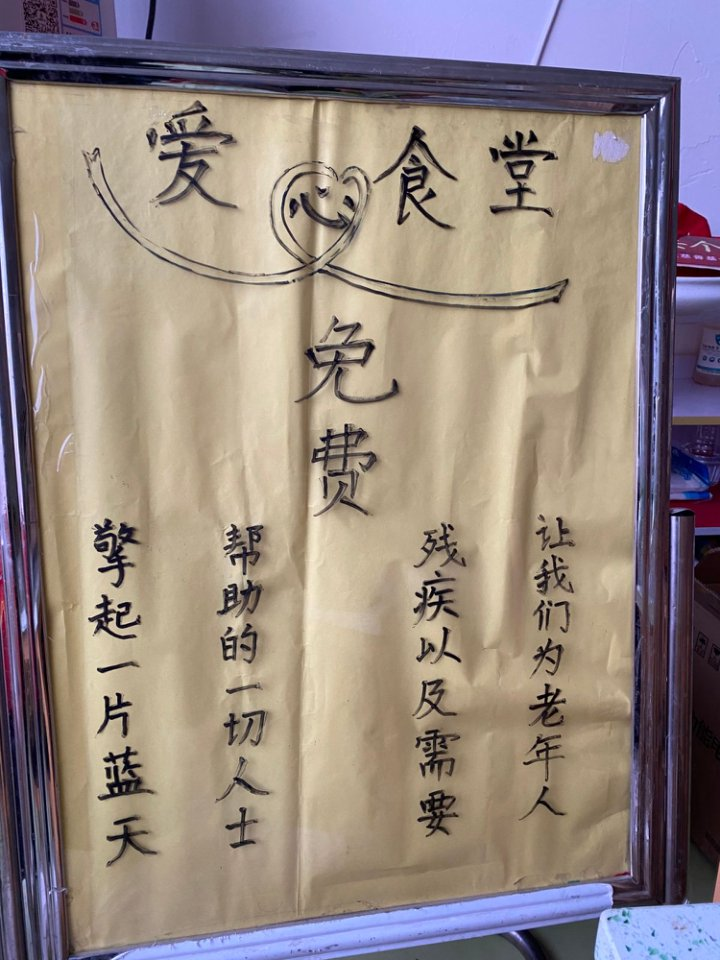 爱心食堂
免费
让我们为老年人
残疾以及需要
帮助的一切人士
擎起一片蓝天